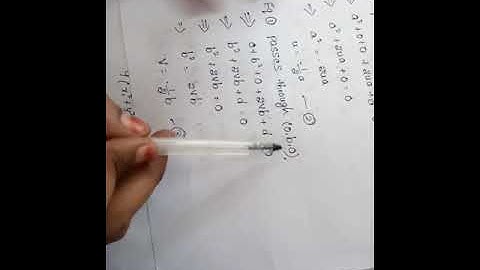 a²+0+0+2ua+
⇒ a²+2ua+0=0
⇒ a² = -2ua
u = -1/2 a — ②
Eq ① passes through (0,b,0)
0+b²+0+2vb+d
⇒ b²+2vb+d=0
⇒ b²+2vb=0
⇒ b² = -2vb
v = -1/2 b — ③